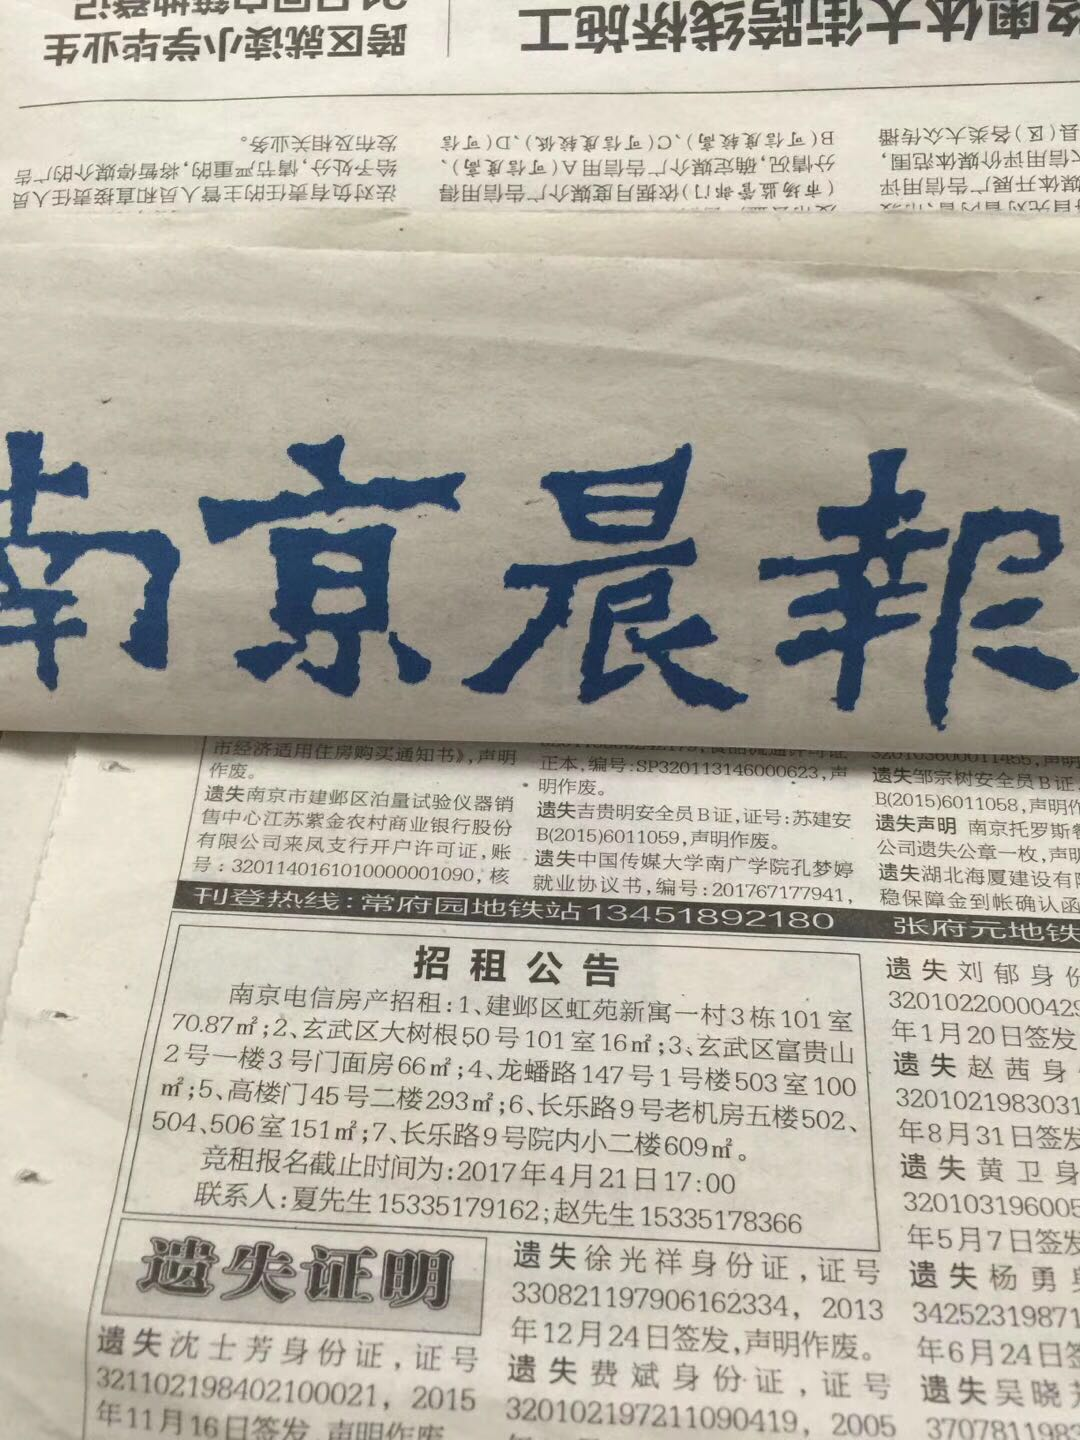 跨区就读小学毕业生
奥体大街跨线桥施工
法对负有责任的主管人员和直接责任人员
给予处分，情节严重的，将暂停媒介的广告
发布及相关业务。
（市场监管部门）依据月度媒介广告信用得
分情况，确定媒介广告信用A（可信度高）、
B（可信度较高）、C（可信度较低）、D（可信
媒体开展广告信用评
信用评价媒体范围，
县（区）各类大众传播
南京晨報
市经济适用住房购买通知书》，声明
作废。
遗失南京市建邺区泊量试验仪器销
售中心江苏紫金农村商业银行股份
有限公司来凤支行开户许可证，账
号：3201140161010000001090，核
正本，编号：SP320113146000623，声
明作废。
遗失吉贵明安全员B证，证号：苏建安
B(2015)6011059，声明作废。
遗失中国传媒大学南广学院孔梦婷
就业协议书，编号：201767177941，
320103600011455，声明
遗失邹宗树安全员B证，
B(2015)6011058，声明作
遗失声明 南京托罗斯餐
公司遗失公章一枚，声明
遗失湖北海厦建设有限
稳保障金到帐确认函
刊登热线：常府园地铁站13451892180
张府元地铁
招租公告
南京电信房产招租：1、建邺区虹苑新寓一村3栋101室
70.87㎡；2、玄武区大树根50号101室16㎡；3、玄武区富贵山
2号一楼3号门面房66㎡；4、龙蟠路147号1号楼503室100
㎡；5、高楼门45号二楼293㎡；6、长乐路9号老机房五楼502、
504、506室151㎡；7、长乐路9号院内小二楼609㎡。
竞租报名截止时间为：2017年4月21日17:00
联系人：夏先生15335179162；赵先生15335178366
遗失证明
遗失沈士芳身份证，证号
321102198402100021，2015
年11月16日签发，声明作废。
遗失徐光祥身份证，证号
330821197906162334，2013
年12月24日签发，声明作废。
遗失费斌身份证，证号
320102197211090419，2005
遗失刘郁身份
32010220000429
年1月20日签发
遗失赵茜身
3201021983031
年8月31日签发
遗失黄卫身
320103196005
年5月7日签发
遗失杨勇
3425231987
年6月24日签
遗失吴晓
3707811983